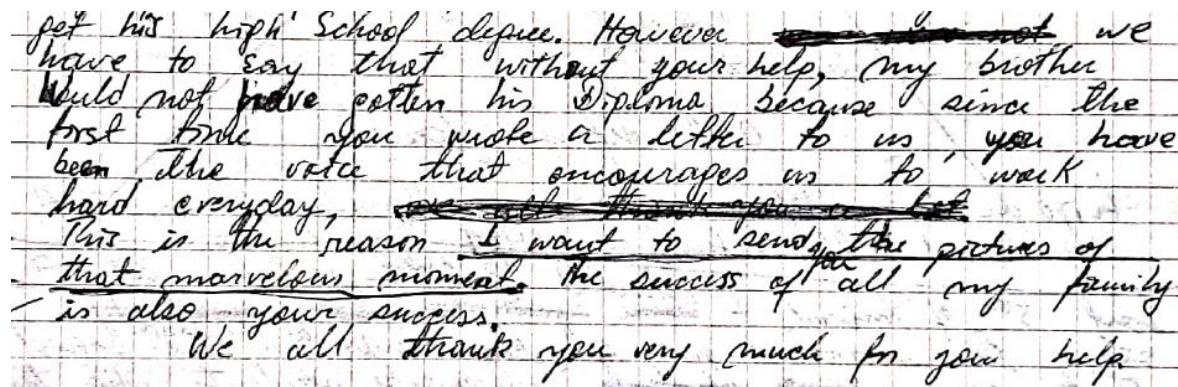 get his high School degree. However we
have to say that without your help, my brother
Would not have gotten his Diploma because since the
first time you wrote a letter to us, you have
been the voice that encourages us to work
hard everyday,
This is the reason I want to send you the pictures of
that marvelous moment. the success of all my family
is also your success.
We all thank you very much for your help